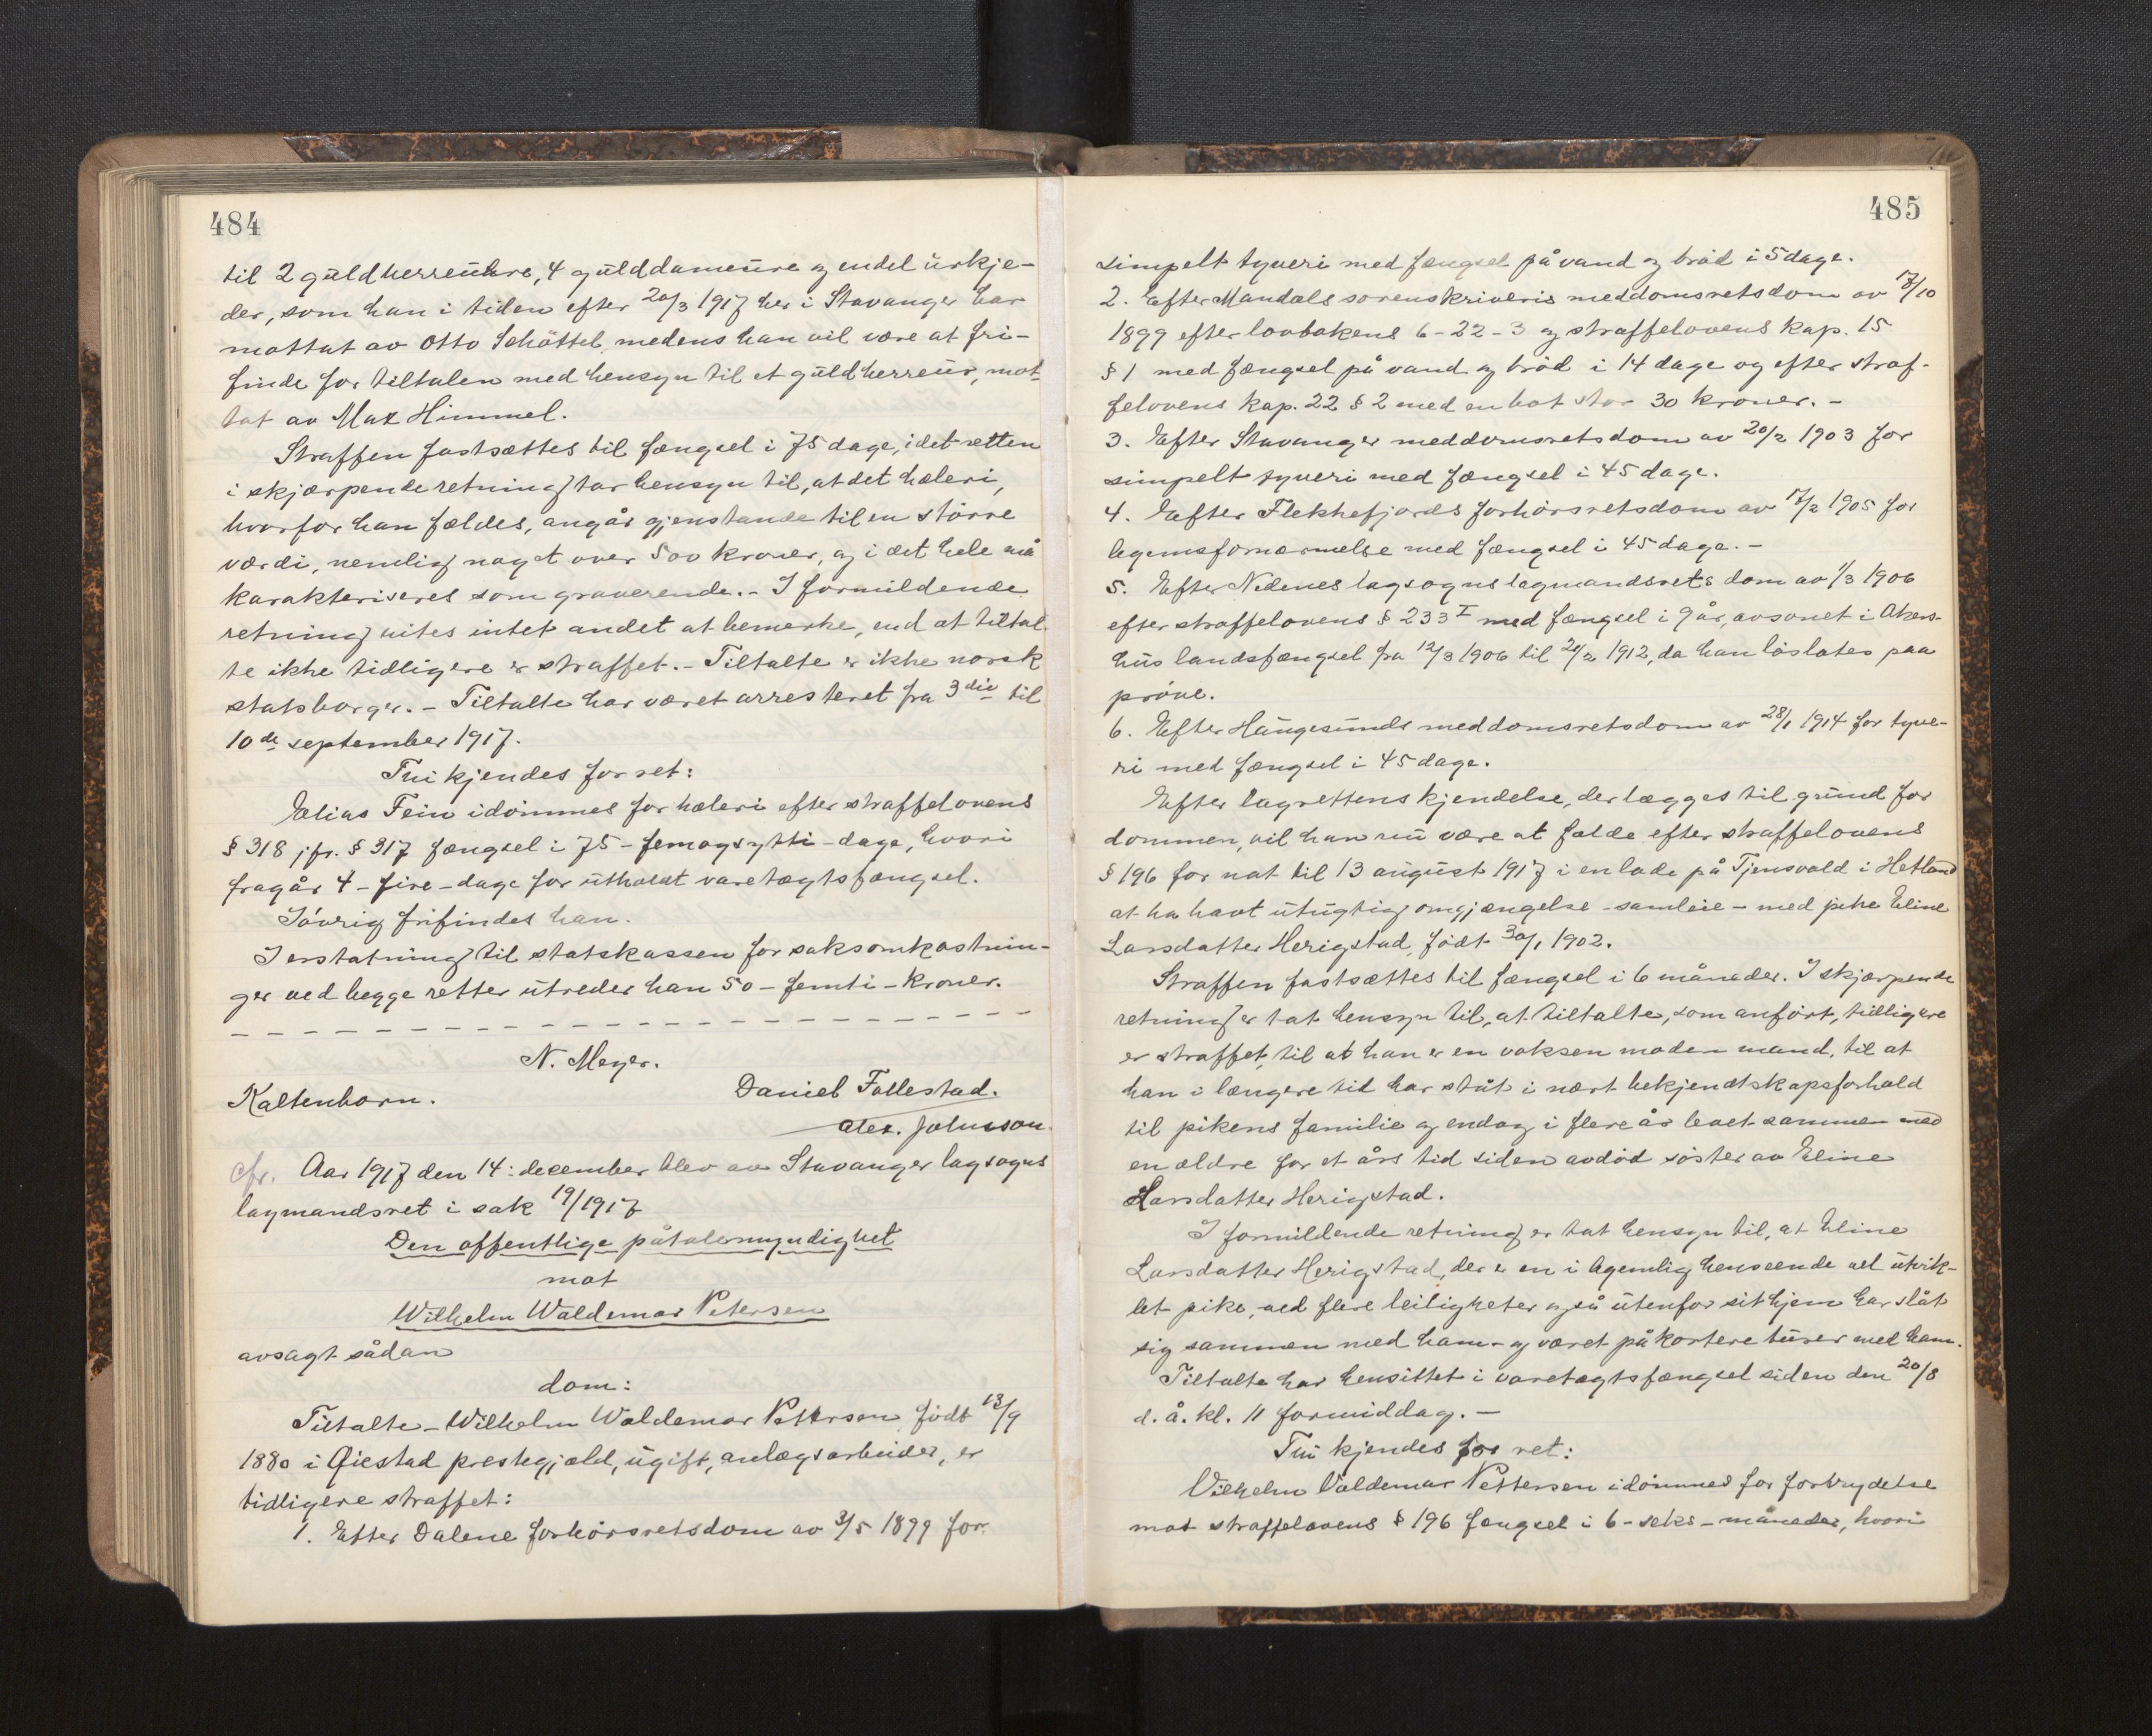 484
til 2 guldherreuhre, 4 gulddameure og endel urkje-
der, som han i tiden efter 20/3 1917 her i Stavanger har
mottat av Otto Schöttel, medens han vil være at fri-
finde for tiltalen med hensyn til et guldherreur, mot-
tat av Max Himmel.
Straffen fastsættes til fængsel i 75 dage, idet retten
i skjærpende retning tar hensyn til, at det hæleri,
hvorfor han fældes, angår gjenstande til en större
værdi, nemlig noget over 500 kroner, og i det hele må
karakteriseres som graverende. - I formildende
retning vites intet andet at bemerke, end at tiltal-
te ikke tidligere er straffet. - Tiltalte er ikke norsk
statsborger. - Tiltalte har været arresteret fra 3die til
10de september 1917.
Thi kjendes for ret:
Elias Fein idömmes for hæleri efter straffelovens
§ 318 jfr. § 317 fængsel i 75 - femogsytti - dage, hvori
fragår 4 - fire - dage for utholdt varetægtsfængsel.
Iövrig frifindes han.
I erstatning til statskassen for saksomkostnin-
ger ved begge retter utreder han 50 - femti - kroner.
N. Meyer.
Kaltenborn. Daniel Follestad.
Alex. Johnsson.
cfr. Aar 1917 den 14: december blev av Stavanger lagsogns
lagmandsret i sak 19/1917
Den offentlige påtalemyndighet
mot
Wilhelm Waldemar Petersen
avsagt sådan
dom:
Tiltalte - Wilhelm Waldemar Pettersen födt 13/9
1880 i Øiestad prestegjæld, ugift, anlægsarbeider, er
tidligere straffet:
1. Efter Dalene forhörsretsdom av 3/5 1899 for
485
simpelt tyveri med fængsel på vand og bröd i 5 dage.
2. Efter Mandals sorenskriveris meddomsretsdom av 17/10
1899 efter lovbokens 6-22-3 og straffelovens kap. 15
§ 1 med fængsel på vand og bröd i 14 dage og efter straf-
felovens kap. 22 § 2 med en bot stor 30 kroner. -
3. Efter Stavanger meddomsretsdom av 20/2 1903 for
simpelt tyveri med fængsel i 45 dage.
4. Efter Flekkefjords forhörsretsdom av 17/2 1905 for
legemsfornærmelse med fængsel i 45 dage. -
5. Efter Nedenes lagsogns lagmandsrets dom av 1/3 1906
efter straffelovens § 233 I med fængsel i 9 år, avsonet i Akers-
hus landsfængsel fra 12/3 1906 til 21/2 1912, da han löslates paa
pröve.
6. Efter Haugesunds meddomsretsdom av 28/1 1914 for tyve-
ri med fængsel i 45 dage.
Efter lagrettens kjendelse, der lægges til grund for
dommen, vil han nu være at fælde efter straffelovens
§ 196 for nat til 13 august 1917 i en lade på Tjensvold i Hetland
at ha havt utugtig omgjængelse - samleie - med pike Eline
Larsdatter Herigstad, födt 30/1 1902.
Straffen fastsættes til fængsel i 6 måneder. I skjærpende
retning er tat hensyn til, at tiltalte, som anfört, tidligere
er straffet, til at han er en voksen moden mand, til at
han i længere tid har ståt i nært bekjendtskapsforhold
til pikens familie og endog i flere år levet sammen med
en ældre for et års tid siden avdöd söster av Eline
Larsdatter Herigstad.
I formildende retning er tat hensyn til, at Eline
Larsdatter Herigstad, der er en i legemlig henseende vel utvik-
let pike, ved flere leiligheter også utenfor sit hjem har slåt
sig sammen med ham - og været på kortere turer med ham.
Tiltalte har hensittet i varetægtsfængsel siden den 20/8
d. å. kl. 11 formiddag. -
Thi kjendes for ret:
Vilhelm Valdemar Pettersen idömmes for forbrydelse
mot straffelovens § 196 fængsel i 6 - seks - måneder, hvori